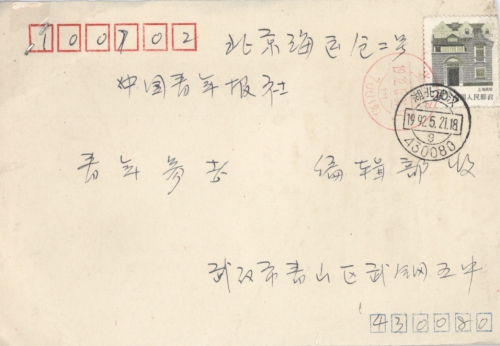 100702 北京海运仓二号
中国青年报社
青年参考 编辑部收
武汉市青山区武钢五中
430080
上海民居
中国人民邮政
湖北武汉
1992.5.21.18
430080